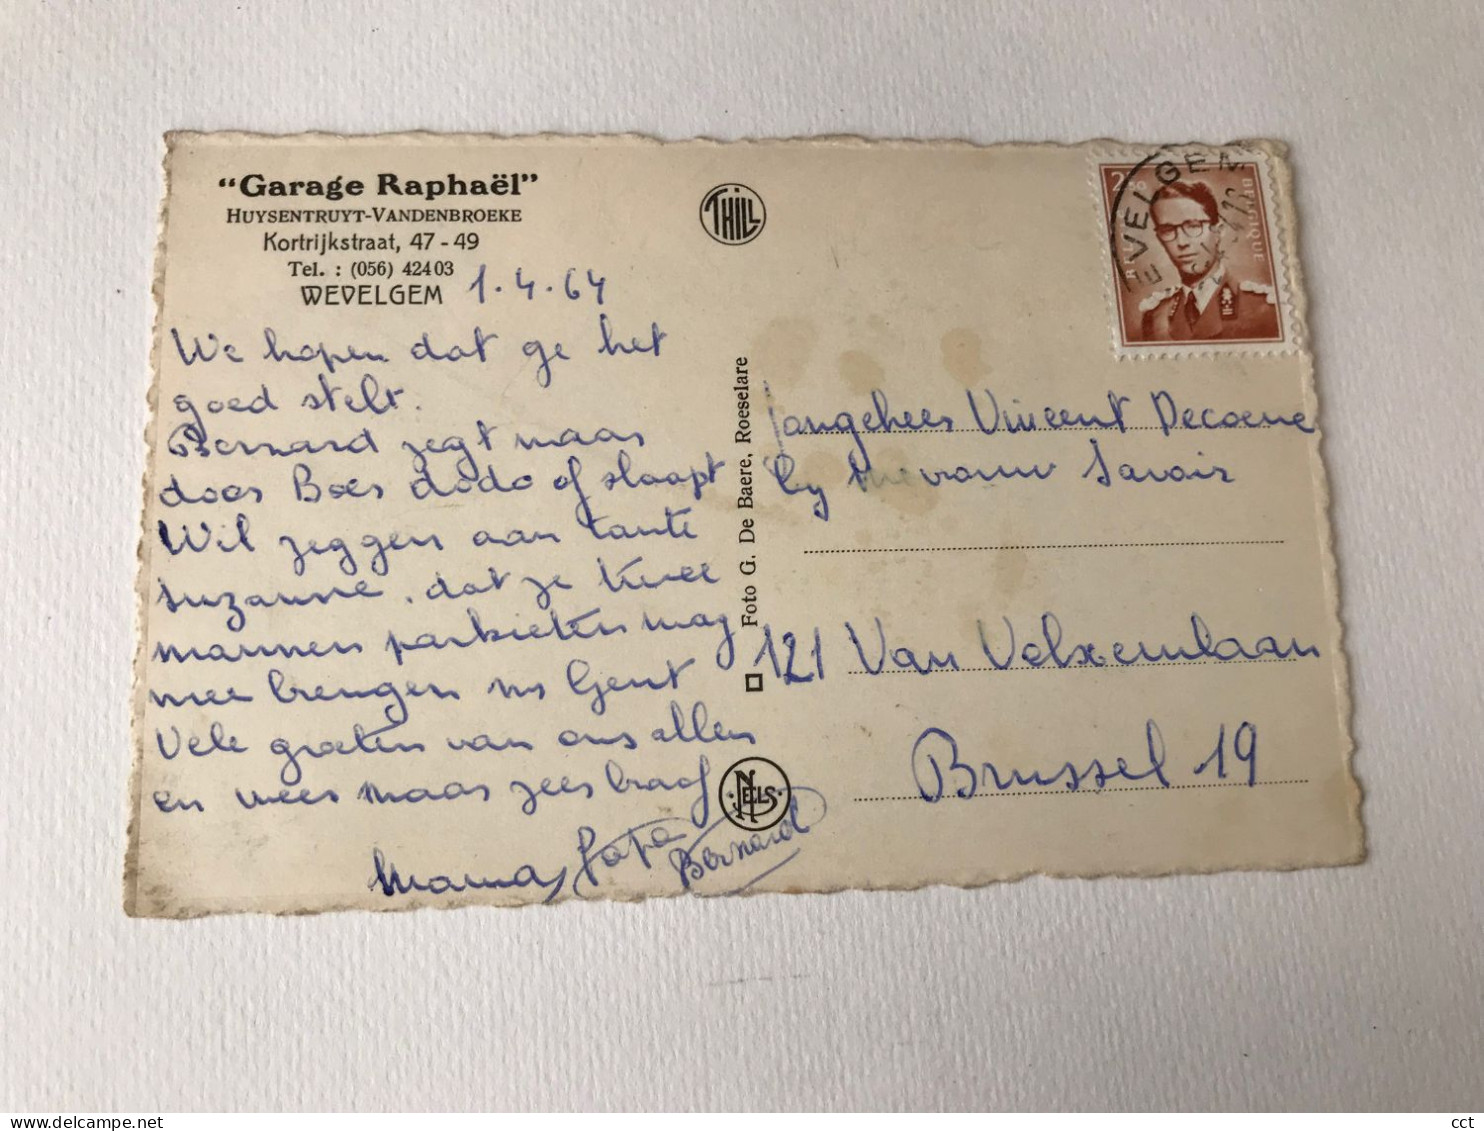 "Garage Raphaël"
HUYSENTRUYT-VANDENBROEKE
Kortrijkstraat, 47 - 49
Tel. : (056) 42403
WEVELGEM
1.4.64
We hopen dat ge het
goed stelt.
Bernard zegt maar
door Boer dodo of slaapt
Wil zeggen aan tante
Suzanne, dat je twee
mannen parkieten mag
mee brengen ns Gent
Vele groeten van ons allen
en wees maar zeer braaf
Mama Papa
Bernard
THILL
Foto G. De Baere, Roeselare
NELS
EVELGEM
2F50
BELGIQUE
Jongeheer Vincent Decoene
by Mevrouw Savoir
121 Van Volxemlaan
Brussel 19
delcampe.net
cct